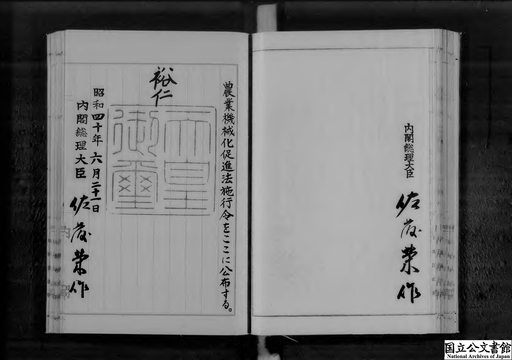 内閣総理大臣
佐藤榮作
農業機械化促進法施行令をここに公布する。
裕仁
天皇御璽
昭和四十年六月二十一日
内閣総理大臣
佐藤榮作
国立公文書館
National Archives of Japan